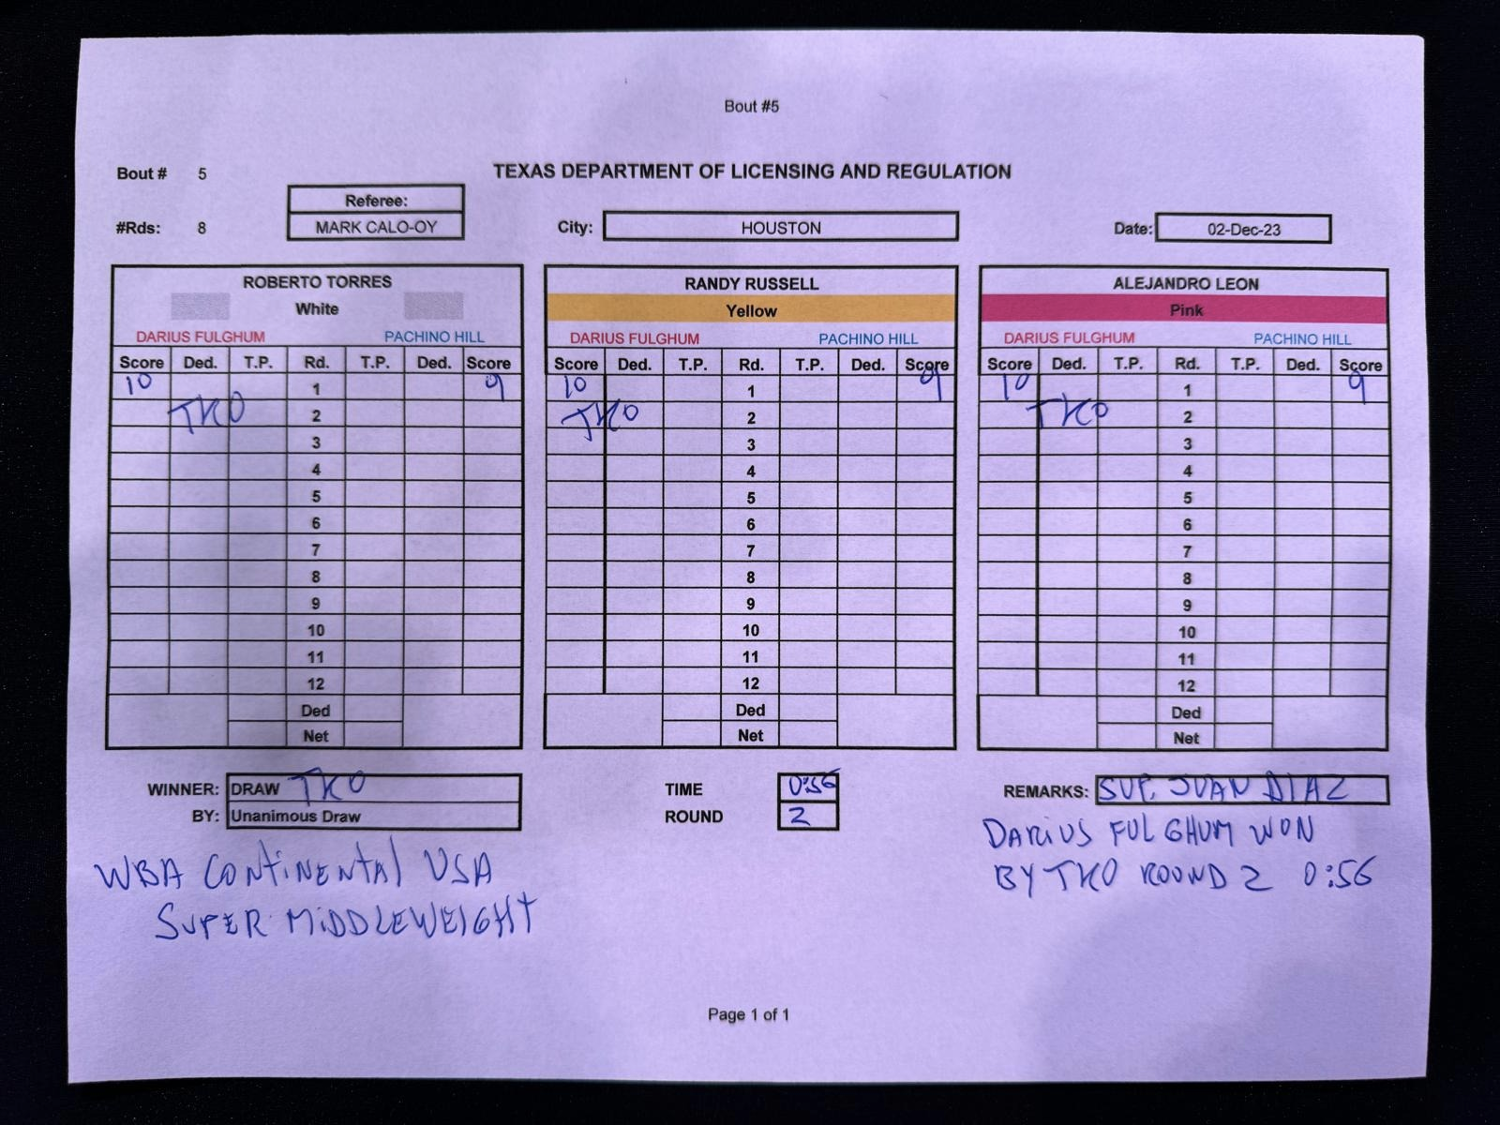 Bout #5
Bout # 5
TEXAS DEPARTMENT OF LICENSING AND REGULATION
#Rds: 8
Referee:
MARK CALO-OY
City: HOUSTON
Date: 02-Dec-23
ROBERTO TORRES
White
DARIUS FULGHUM PACHINO HILL
Score Ded. T.P. Rd. T.P. Ded. Score
10 1 9
TKO 2
3
4
5
6
7
8
9
10
11
12
Ded
Net
RANDY RUSSELL
Yellow
DARIUS FULGHUM PACHINO HILL
Score Ded. T.P. Rd. T.P. Ded. Score
10 1 9
TKO 2
3
4
5
6
7
8
9
10
11
12
Ded
Net
ALEJANDRO LEON
Pink
DARIUS FULGHUM PACHINO HILL
Score Ded. T.P. Rd. T.P. Ded. Score
10 1 9
TKO 2
3
4
5
6
7
8
9
10
11
12
Ded
Net
WINNER: DRAW TKO
BY: Unanimous Draw
WBA CONTINENTAL USA
SUPER MIDDLEWEIGHT
TIME 0:56
ROUND 2
REMARKS: SUP. JUAN DIAZ
DARIUS FULGHUM WON
BY TKO ROUND 2 0:56
Page 1 of 1